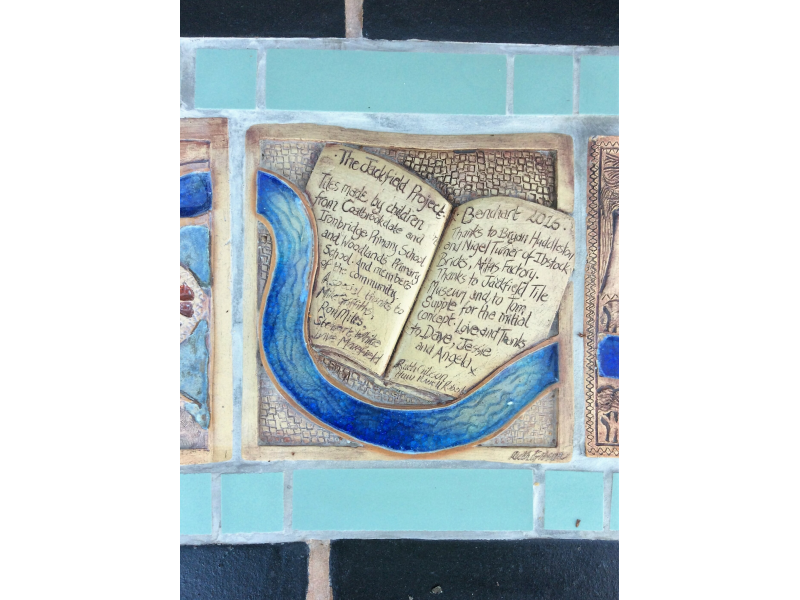 The Jackfield Project.
Tiles made by children
from Coalbrookdale and
Ironbridge Primary School
and Woodlands Primary
School. And members
of the community.
A special thanks to
Ron Miles.
Stewart White
Clive Manfield
Benchart 2015.
Thanks to Bryan Huddleston
and Nigel Turner of Ibstock
Bricks, Atlas Factory.
Thanks to Jackfield Tile
Museum and to Tom
Supple for the initial
concept. Love and Thanks
to Dave, Jessie
and Angel x
Ruth Gibson